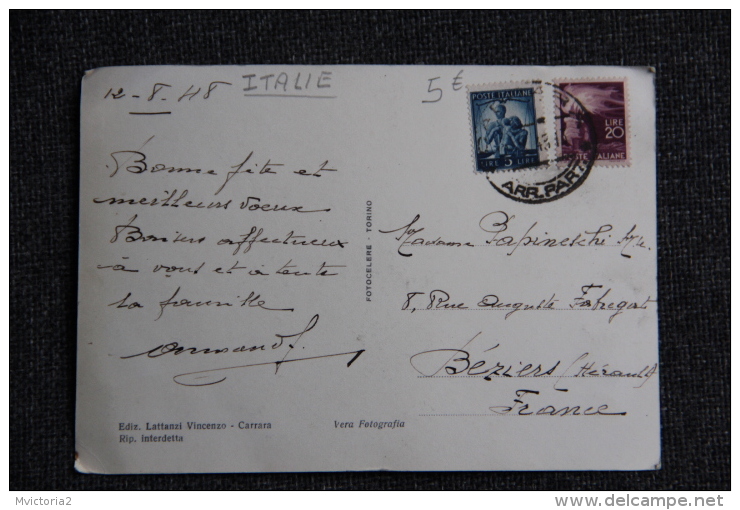 12-8.48
ITALIE
5€
POSTE ITALIANE
LIRE 5 LIRE
LIRE
20
POSTE ITALIANE
ARR. PART
Bonne fête et
meilleurs voeux
Baisers affectueux
à vous et à toute
la famille
Armand
FOTOCELERE - TORINO
Madame Papineschi
8, Rue Auguste Fabregat
Béziers (Hérault)
France
Ediz. Lattanzi Vincenzo - Carrara
Rip. interdetta
Vera Fotografia
Mvictoria2
delcampe.net